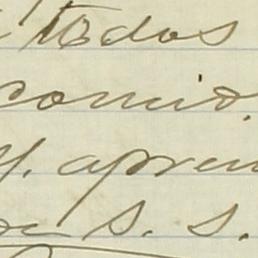 todos
comid
y. apren
de S. S.